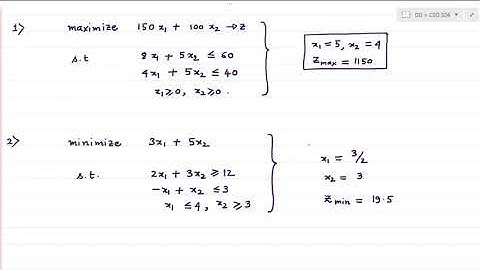 DB - CSD 304
1) maximize 150 x₁ + 100 x₂ → Z
s.t 8x₁ + 5x₂ ≤ 60
4x₁ + 5x₂ ≤ 40
x₁ ≥ 0, x₂ ≥ 0.
x₁ = 5, x₂ = 4
Zmax = 1150
2) minimize 3x₁ + 5x₂
s.t. 2x₁ + 3x₂ ≥ 12
-x₁ + x₂ ≤ 3
x₁ ≤ 4, x₂ ≥ 3
x₁ = 3/2
x₂ = 3
Zmin = 19.5